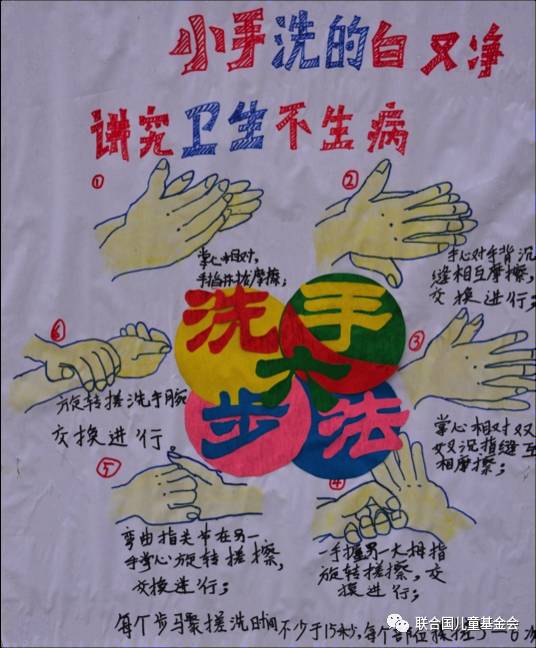 小手洗的白又净
讲究卫生不生病
①
掌心相对,
手指并拢摩擦;
②
手心对手背沉
缝相互摩擦,
交换进行;
洗手
六
步法
③
掌心相对双
沉指缝互
相摩擦;
④
一手握另一大拇指
旋转搓擦,交
换进行;
⑤
弯曲指关节在另一
手掌心旋转搓擦,
交换进行;
⑥
旋转搓洗手腕
交换进行。
每个步骤搓洗时间不少于15秒,每个部位
联合国儿童基金会